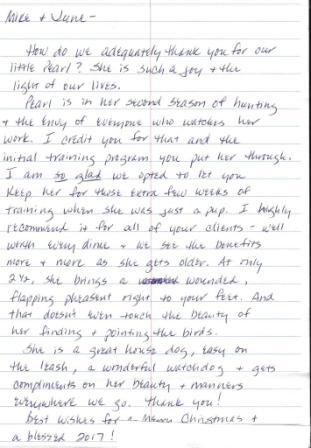 Mike + June -
How do we adequately thank you for our
little Pearl? She is such a joy + the
light of our lives.
Pearl is in her second season of hunting
+ the envy of everyone who watches her
work. I credit you for that and the
initial training program you put her through.
I am so glad we opted to let you
keep her for those extra few weeks of
training when she was just a pup. I highly
recommend it for all of your clients - well
worth every dime + we see the benefits
more + more as she gets older. At only
2 1/2, she brings a wounded,
flapping pheasant right to your feet. And
that doesn't even touch the beauty of
her finding + pointing the birds.
She is a great house dog, easy on
the leash, a wonderful watchdog + gets
compliments on her beauty + manners
everywhere we go. Thank you!
Best wishes for a Merry Christmas +
a blessed 2017!